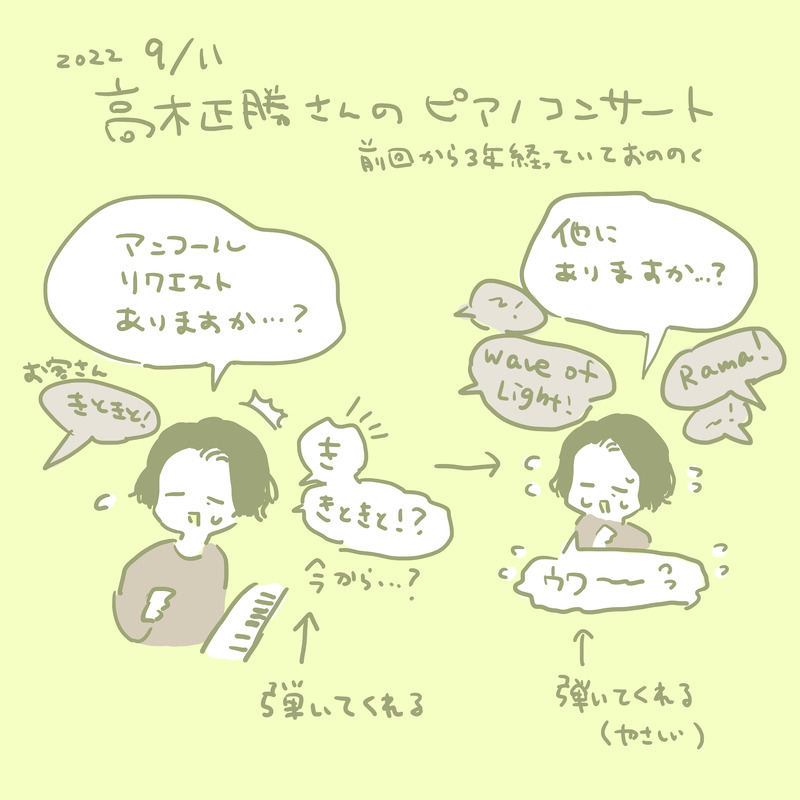 2022 9/11
高木正勝さんの ピアノコンサート
前回から3年経っていておののく
アンコール
リクエスト
ありますか…?
お客さん
きときと!
き
きときと!?
今から…?
弾いてくれる
他に
ありますか…?
〜!
wave of
Light!
Rama!
〜!
ウワーーっ
弾いてくれる
(やさしい)